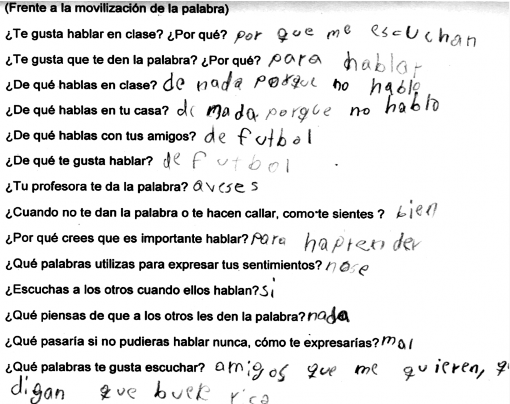 (Frente a la movilización de la palabra)
¿Te gusta hablar en clase? ¿Por qué? por que me escuchan
¿Te gusta que te den la palabra? ¿Por qué? para hablar
¿De qué hablas en clase? de nada porque no hablo
¿De qué hablas en tu casa? de nada porque no hablo
¿De qué hablas con tus amigos? de futbol
¿De qué te gusta hablar? de futbol
¿Tu profesora te da la palabra? aveses
¿Cuando no te dan la palabra o te hacen callar, como te sientes ? bien
¿Por qué crees que es importante hablar? para haprender
¿Qué palabras utilizas para expresar tus sentimientos? nose
¿Escuchas a los otros cuando ellos hablan? si
¿Qué piensas de que a los otros les den la palabra? nada
¿Qué pasaría si no pudieras hablar nunca, cómo te expresarías? mal
¿Qué palabras te gusta escuchar? amigos que me quieren,
digan que rico